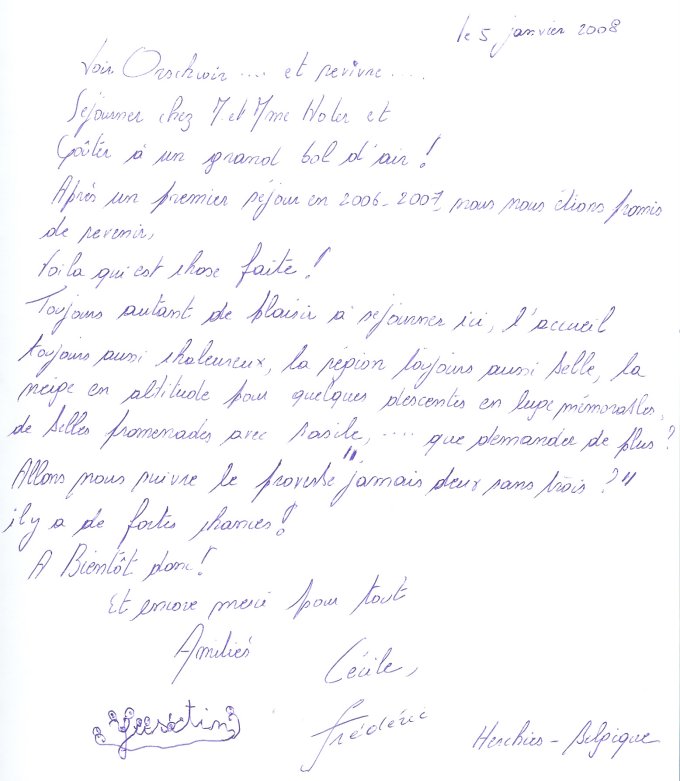 le 5 janvier 2008
Voir Orschwir .... et revivre ....
Séjourner chez M et Mme Noter et
Goûter à un grand bol d'air !
Après un premier séjour en 2006-2007, nous nous étions promis
de revenir,
Voila qui est chose faite !
Toujours autant de plaisir à séjourner ici, l'accueil
toujours aussi chaleureux, la région toujours aussi belle, la
neige en altitude pour quelques descentes en luge mémorables,
de belles promenades avec Basile, .... que demander de plus ?
Allons nous suivre le proverbe "jamais deux sans trois ?"
il y a de fortes chances !
A Bientôt donc !
Et encore merci pour tout
Amitiés
Cécile,
Frédéric
Herchies - Belgique